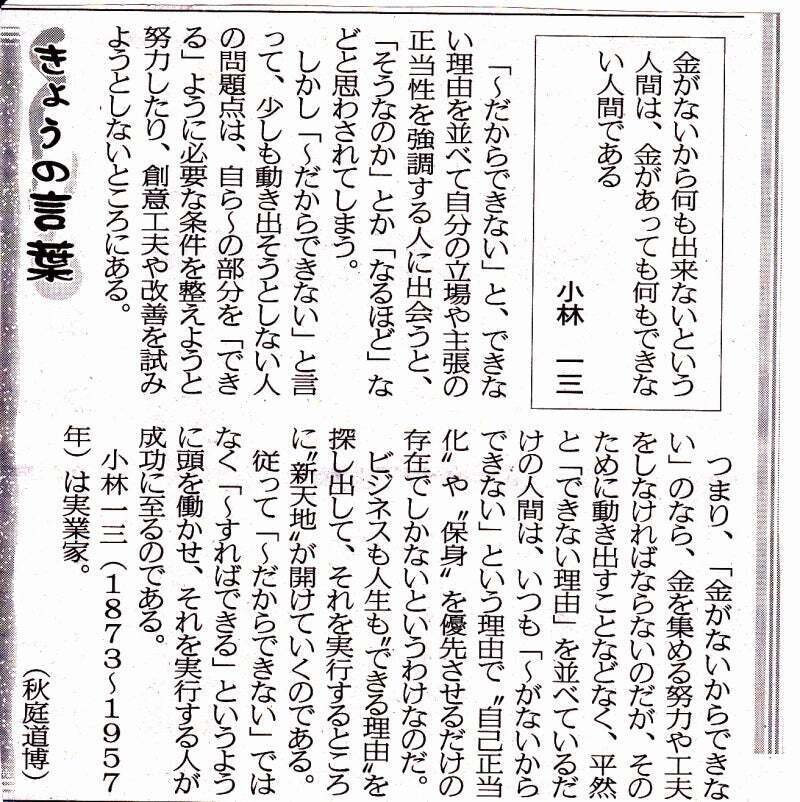 きょうの言葉
金がないから何も出来ないという
人間は、金があっても何もできな
い人間である
小林 一三
「〜だからできない」と、できな
い理由を並べて自分の立場や主張の
正当性を強調する人に出会うと、
「そうなのか」とか「なるほど」な
どと思わされてしまう。
しかし「〜だからできない」と言
って、少しも動き出そうとしない人
の問題点は、自ら〜の部分を「でき
る」ように必要な条件を整えようと
努力したり、創意工夫や改善を試み
ようとしないところにある。
つまり、「金がないからできな
い」のなら、金を集める努力や工夫
をしなければならないのだが、その
ために動き出すことなどなく、平然
と「できない理由」を並べているだ
けの人間は、いつも「〜がないから
できない」という理由で〝自己正当
化〟や〝保身〟を優先させるだけの
存在でしかないというわけなのだ。
ビジネスも人生も〝できる理由〟を
探し出して、それを実行するところ
に〝新天地〟が開けていくのである。
従って「〜だからできない」では
なく「〜すればできる」というよう
に頭を働かせ、それを実行する人が
成功に至るのである。
小林一三（1873〜1957
年）は実業家。
（秋庭道博）